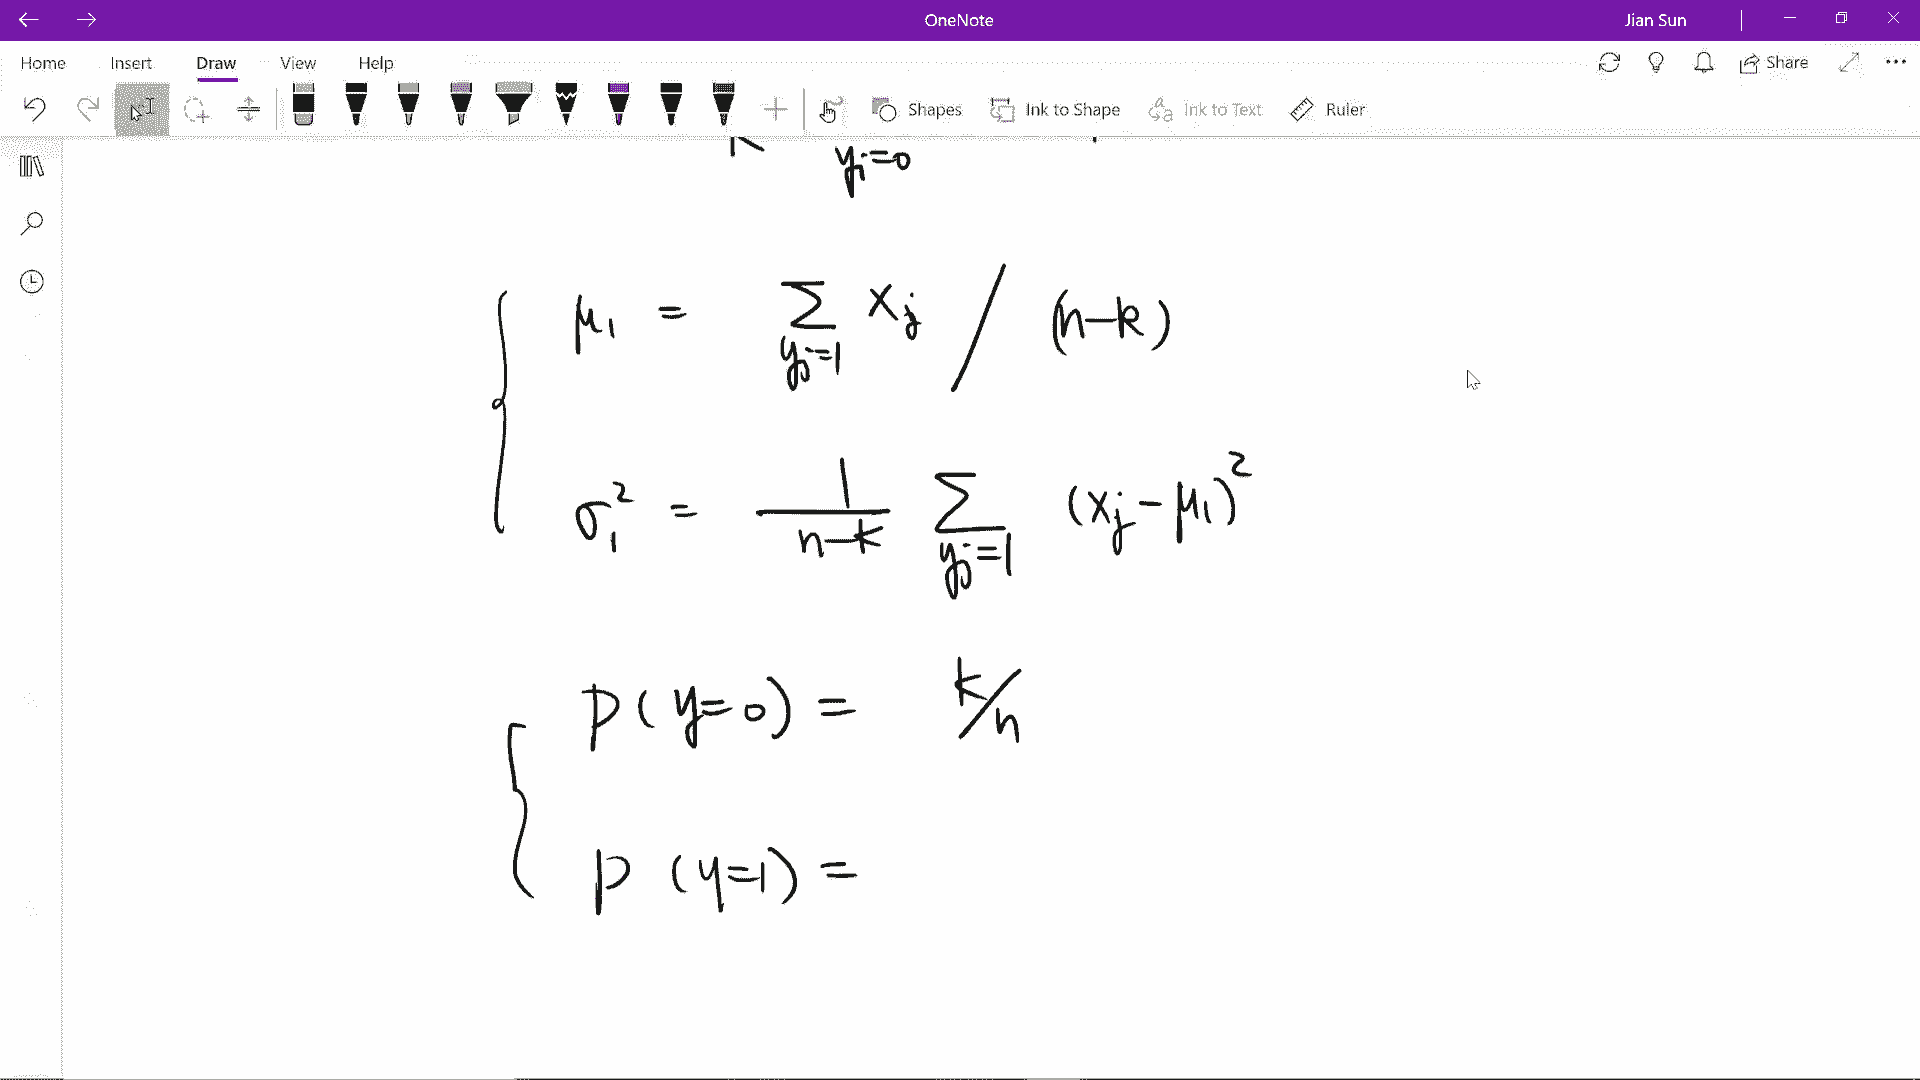 OneNote
Jian Sun
Home Insert Draw View Help
Share
Shapes Ink to Shape Ink to Text Ruler
yᵢ=0
μ₁ = Σ xⱼ / (n-k)
yⱼ=1
σ₁² = 1/(n-k) Σ (xⱼ - μ₁)²
yⱼ=1
p(y=0) = k/n
p(y=1) =